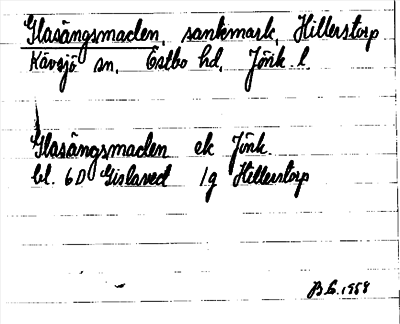 Glasängsmaden, sankmark, Hillerstorp
Kävsjö sn, Östbo hd, Jönk. l.
Glasängsmaden ek Jönk.
bl. 6D Gislaved 1g Hillerstorp